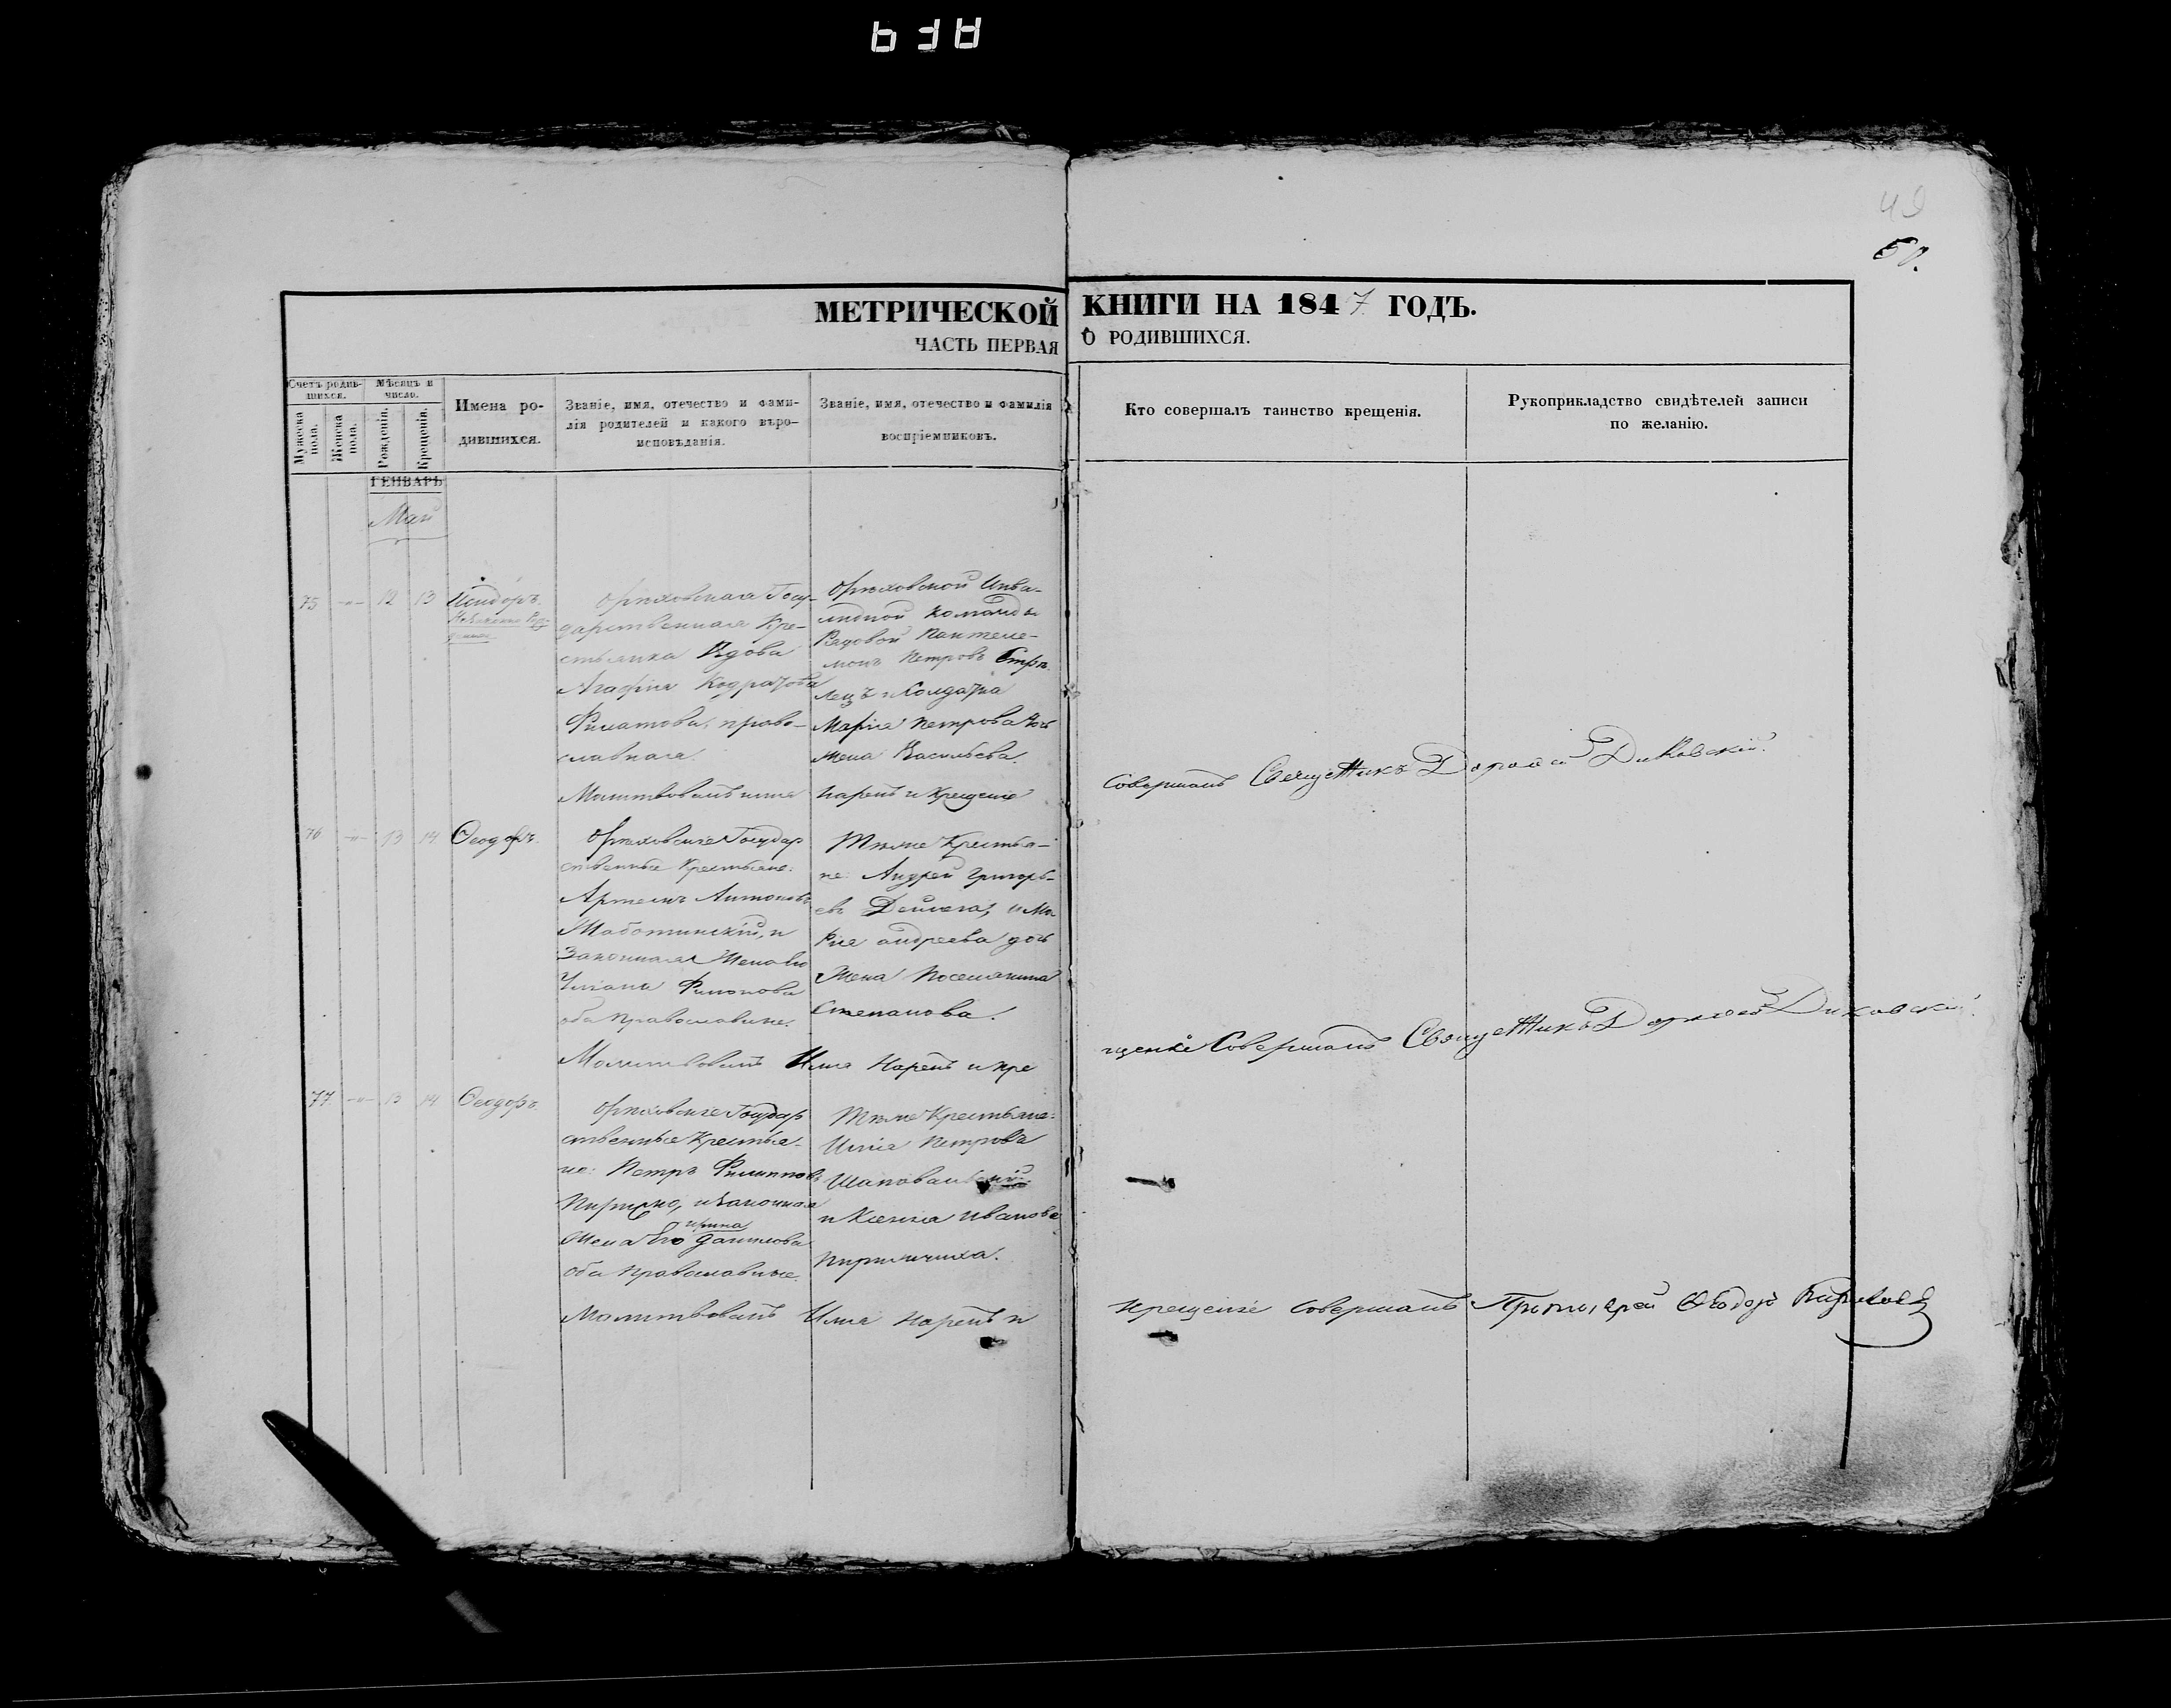 49
50.
МЕТРИЧЕСКОЙ КНИГИ НА 1847 ГОДЪ.
ЧАСТЬ ПЕРВАЯ О РОДИВШИХСЯ.
Счетъ родив-
шихся.
Мужеска
пола.
Женска
пола.
Мѣсяцъ и
число.
Рожденія.
Крещенія.
Имена ро-
дившихся.
Званіе, имя, отечество и фами-
лія родителей и какого вѣро-
исповѣданія.
Званіе, имя, отечество и фамилія
воспріемниковъ.
Кто совершалъ таинство крещенія.
Рукоприкладство свидѣтелей записи
по желанію.
ГЕНВАРЬ
Май
75 -"- 12 13 Исидоръ.
Орѣховская Госу-
дарственная Кре-
стьянка Вдова
Агафія Кодратова
Филатова, право-
славная.
Орѣховской Инва-
лидной Команды
Рядовой Пантеле-
монъ Петровъ Стрѣ-
лецъ и Солдатка
Марія Петрова дочь
жена Васильева.
Молитвовалъ имя нарекъ и Крещеніе Совершалъ Священникъ Дорофей Диковскій.
76 -"- 13 14 Ѳеодоръ.
Орѣховскіе Государ
ственные Крестьяне:
Артемъ Антоновъ
Жаботинскій, и
Законная Жена его
Ульяна Филонова
оба Православные.
Тѣже Крестья-
не: Андрей Григорь-
евъ Дейнега, и Ма
рія Андреева дочь
Жена Поселянина
Степанова.
Молитвовалъ Имя Нарекъ и кре
щеніе Совершалъ Священникъ Дорофей Диковскій.
77 -"- 13 14 Ѳеодоръ
Орѣховскіе Государ
ственные Крестья-
не: Петръ Филипповъ
и Законная
Жена Его Ирина Данилова
оба Православные.
Тѣже Крестьяне:
Илія Петровъ
и Ксенія Иванова
Молитвовалъ Имя Нарекъ и
Крещеніе Совершалъ Протоіерей Ѳеодоръ